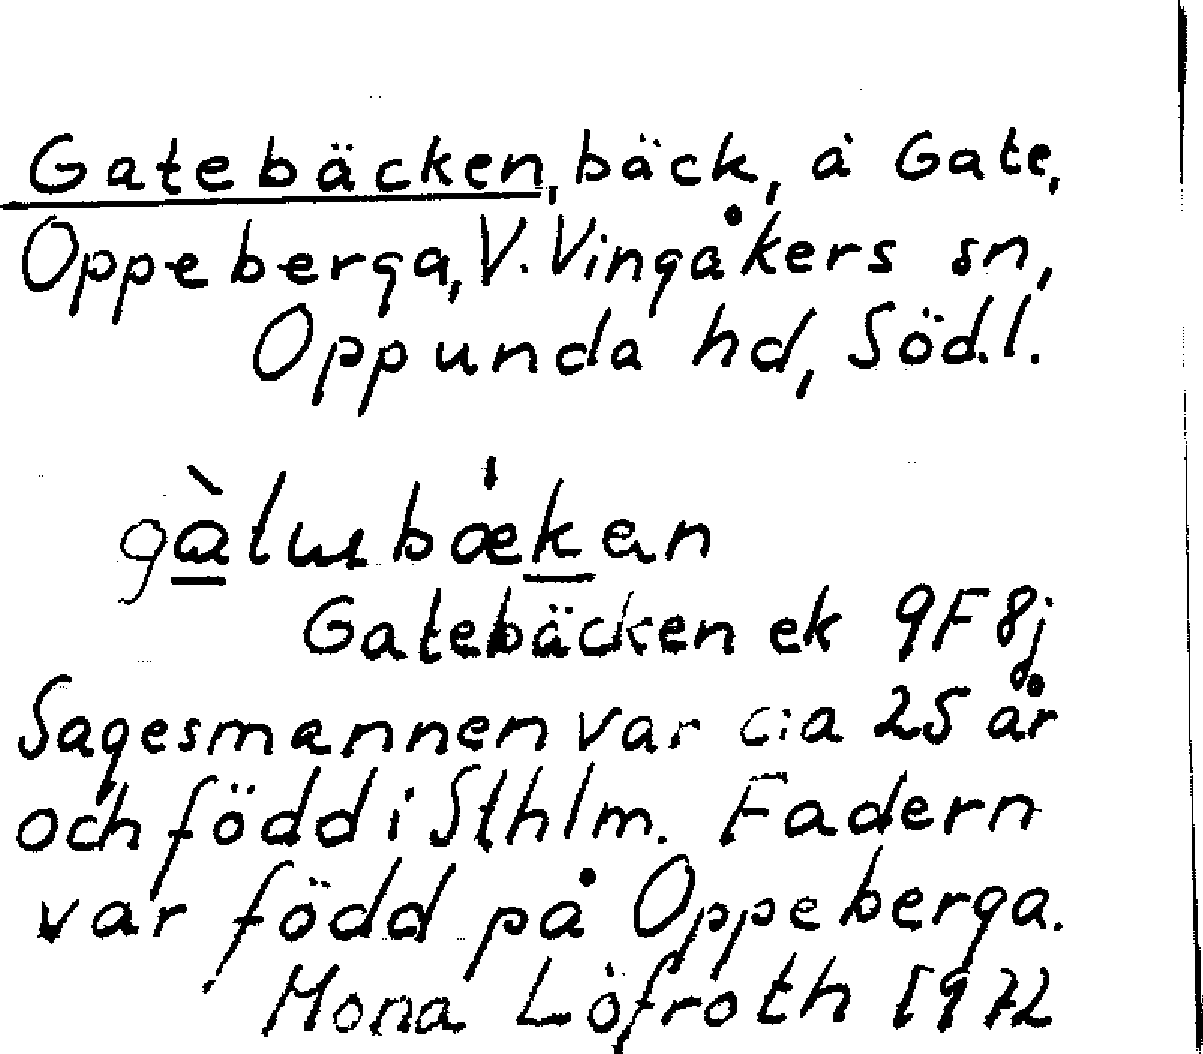 Gatebäcken, bäck, å Gate,
Oppeberga, V. Vingåkers sn,
Oppunda hd, Södl.
Gatebäcken ek 9F8j
Sagesmannen var cia 25 år
och född i Sthlm. Fadern
var född på Oppeberga.
Mona Löfroth 1972